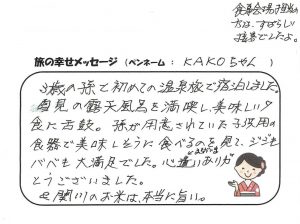 食事会場担当の
方は、すばらしい
接客でしたよ。
旅の幸せメッセージ（ペンネーム：KAKOちゃん）
3歳の孫と初めての温泉旅で宿泊しました。
雪見の露天風呂を満喫し、美味しい夕
食に舌鼓。孫が用意されていた子供用の
食器で美味しそうに食べるのを見て、ジジも
ババも大満足でした。心遣いありが
とうございました。
関川のお米は、本当に旨い。